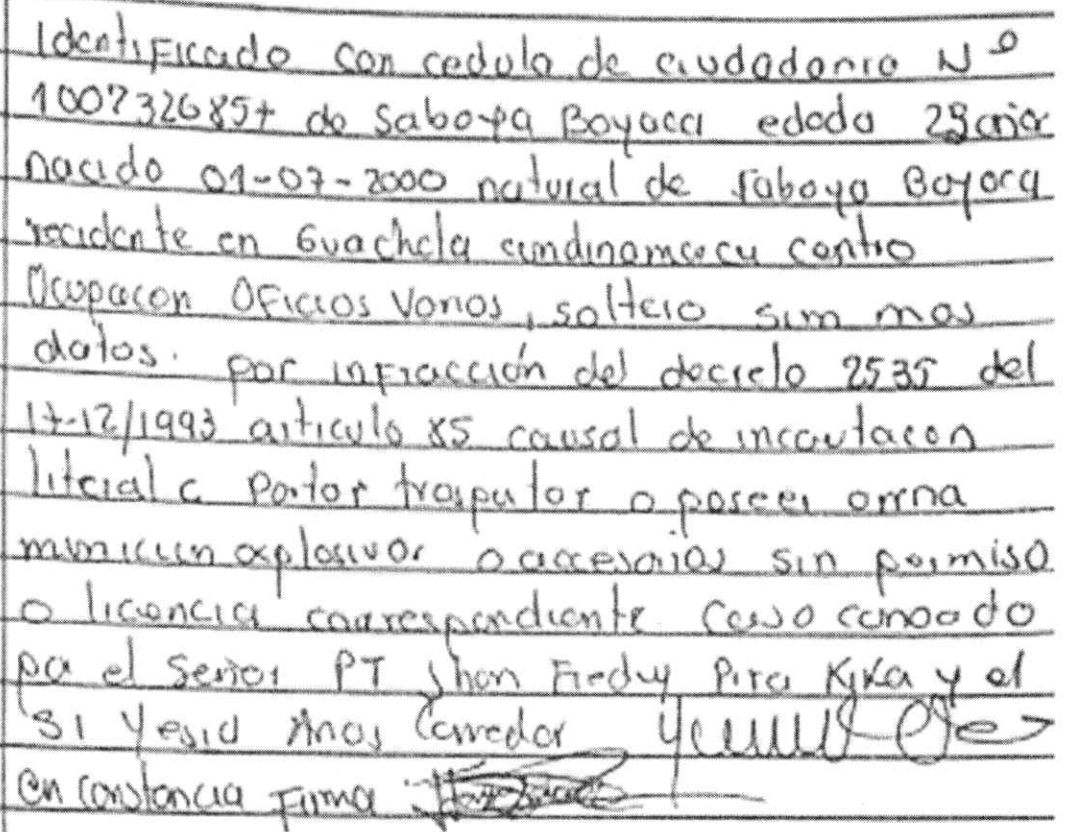 Identificado con cedula de ciudadania Nº
1007326857 de Saboya Boyaca edada años
nacido 01-07-2000 natural de Saboya Boyaca
recidente en Guacheta cundinamarca centro
Ocupacon Oficios Varios, soltero sim mas
datos. por infracción del decreto 2535 del
17-12/1993 articulo 85 causal de incautacon
literal c Portar trasputar o poseer arma
municiun explosivos o accesorios sin permiso
o licencia correspondiente Caso conocido
por el Señor PT Jhon Fredy Pira y el
SI Yesid Arias Corredor
en constancia Firma